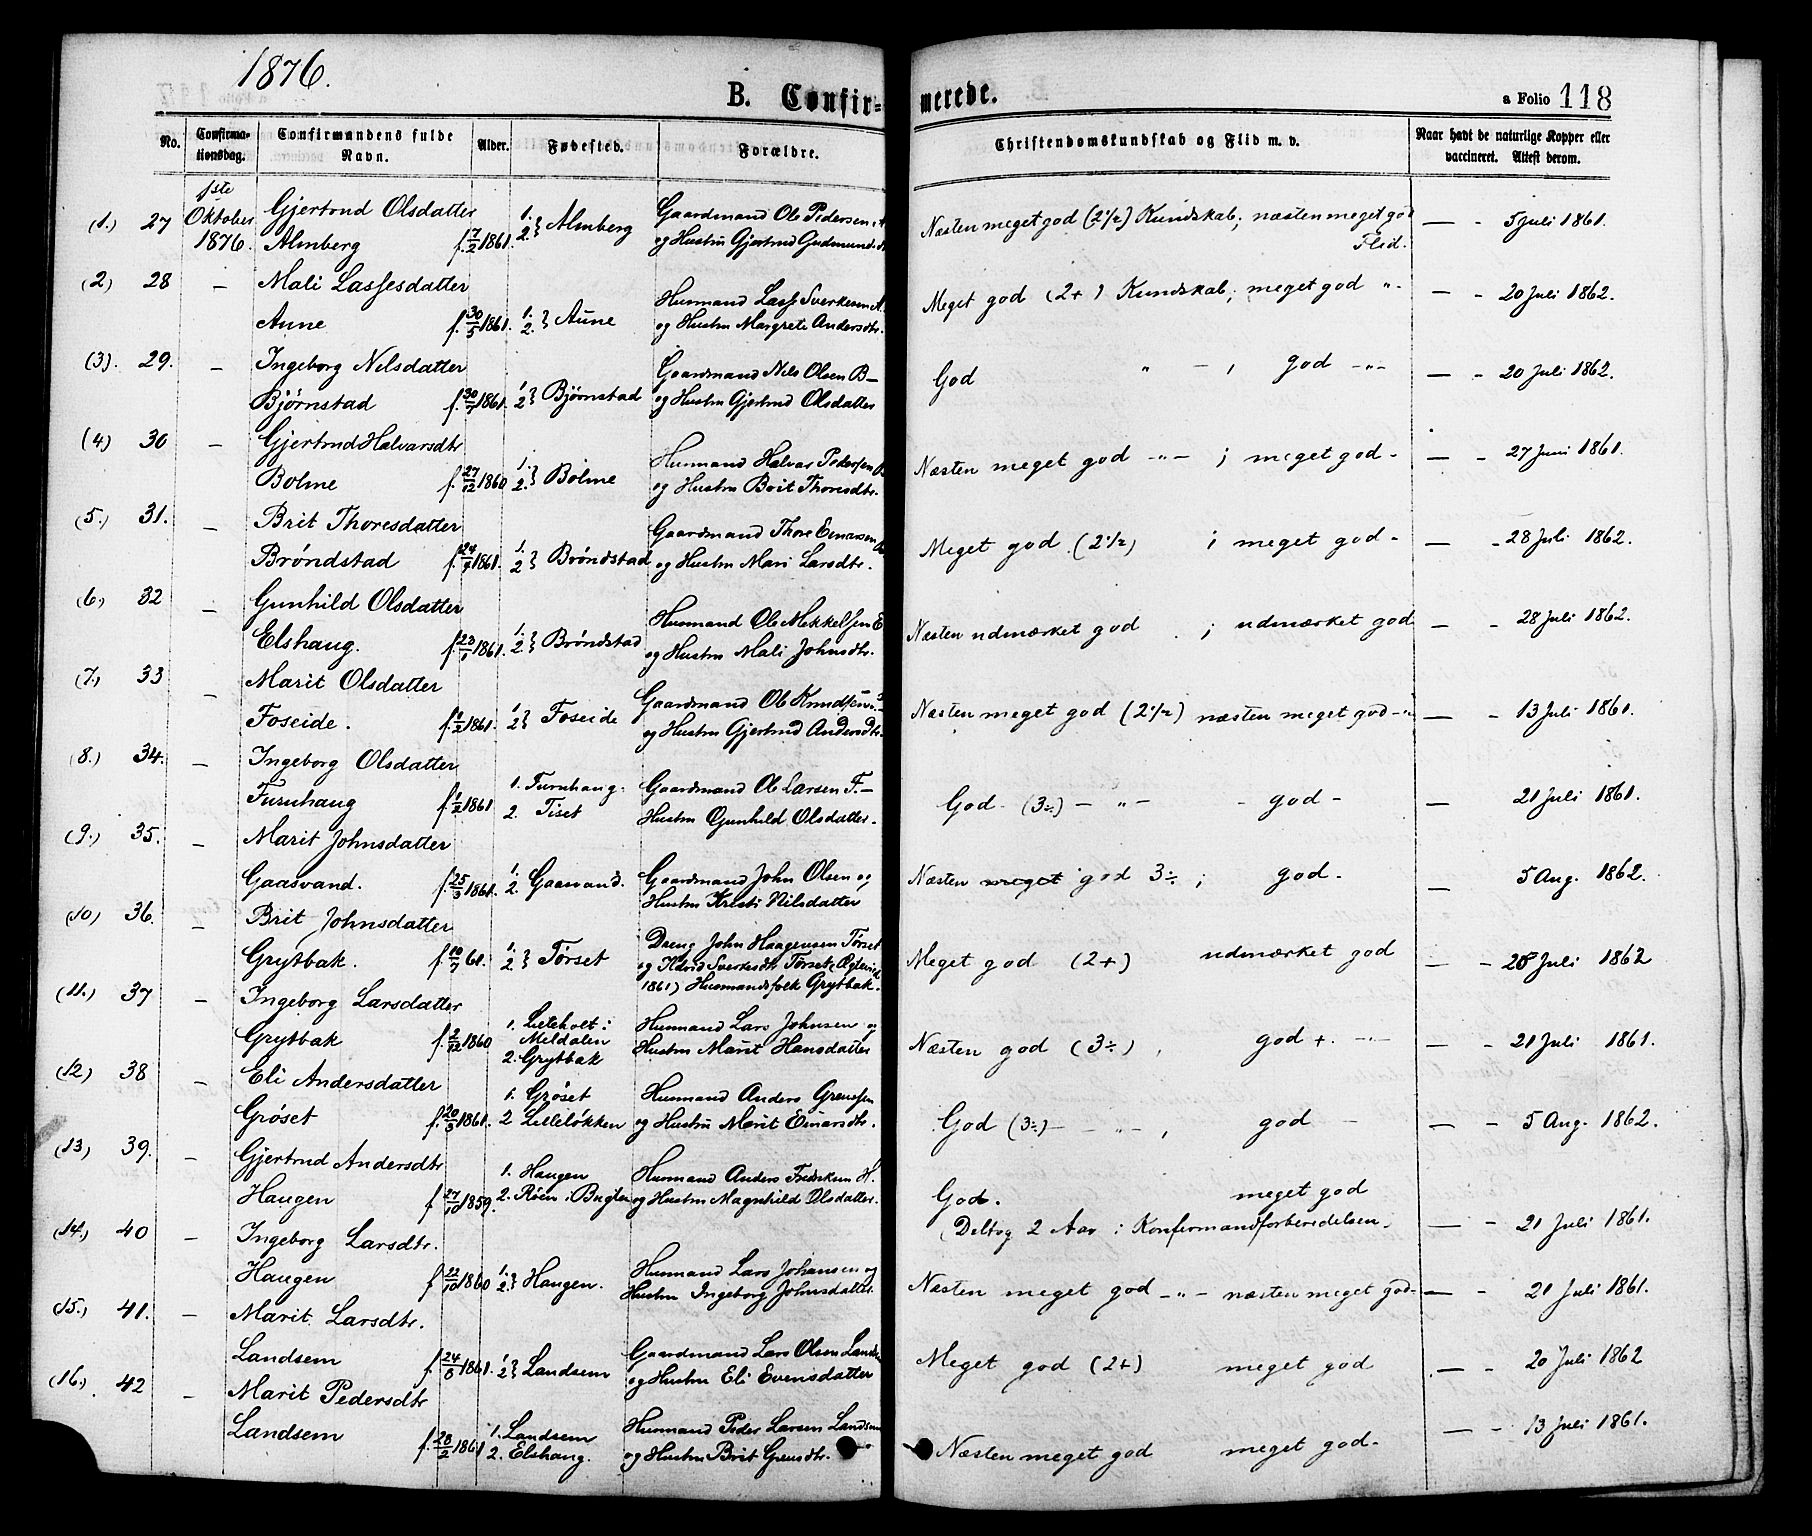 1876.
B. Confirmerede.
a Folio 118
No.
Confirmationsdag.
Confirmandens fulde Navn.
Alder.
Fødested.
Forældre.
Christendomskundskab og Flid m. v.
Naar havt de naturlige Kopper eller vaccineret. Attest derom.
(1.) 27 1ste Oktober 1876. Gjertrud Olsdatter
Almberg f. 7/2 1861. 1. 2. } Almberg Gaardmand Ole Pedersen A
og Hustru Gjertrud Gudmundsd. Næsten meget god (2 1/2) Kundskab; næsten meget god Flid. — - 5 Juli 1861.
(2) 28 — Mali Lassesdatter
Aune f. 30/5 1861. 1. 2. } Aune Husmand Lass Sverkesen A.
og Hustru Margrete Andersdtr. Meget god (2+) Kundskab; meget god „- — - 20 Juli 1862.
(3). 29. — Ingeborg Nilsdatter
Bjørnstad f. 30/7 1861. 1 2 } Bjørnstad Gaardmand Nils Olsen B—
og Hustru Gjertrud Olsdatter God „ — , god -„- — - 20 Juli 1862.
(4) 30 — Gjertrud Halvarsdtr
Bolme f. 27/12 1860 1. 2. } Bolme Husmand Halvar Pedersen B
og Hustru Brit Thoresdtr. Næsten meget god -„- ; meget god - — - 27 Juni 1861.
(5.) 31. — Brit Thoresdatter
Brøndstad f. 24/9 1861. 1. 2 } Brøndstad Gaardmand Thore Einarssen
og Hustru Mari Larsdtr. Meget god (2 1/2) ; meget god - — - 28 Juli 1862.
(6.) 32 — Gunhild Olsdatter
Elshaug. f. 23/1 1861. 1. 2. } Brøndstad Husmand Ole Mekkelsen E
og Hustru Mali Johnsdtr. Næsten udmærket god ; udmærket god — - 28 Juli 1862.
(7.) 33 — Marit Olsdatter
Foseide. f. 1/2 1861. 1 2 } Foseide Gaardmand Ole Knudsen
og Hustru Gjertrud Andersdtr. Næsten meget god (2 1/2) næsten meget god -„ — - 13 Juli 1861.
(8.) 34. — Ingeborg Olsdatter
Furuhaug f. 1/2 1861 1. Furuhaug.
2. Tiset Gaardmand Ole Larsen F.—
Hustru Gunhild Olsdatter. God (3÷) — „ — - god - — 21 Juli 1861.
(9.) 35. — Marit Johnsdatter
Gaasvand. f. 25/3 1861. 1. 2. } Gaasvand. Gaardmand John Olsen og
Hustru Kristi Nilsdatter Næsten meget god 3÷ ; god. — 5 Aug. 1862.
(10) 36. — Brit Johnsdatter
Grytbak. f. 10/7 61. 1. 2 } Tørset Dreng John Haagensen Tørset
og Sverkesdtr Tørset (
1861) Husmandsfolk Grytbak. Meget god (2+) udmærket god — - 28 Juli 1862
(11.) 37 — Ingeborg Larsdatter
Grytbak f. 2/12 1860 1. Liteholt i
Meldalen
2. Grytbak Husmand Lars Johnsen og
Hustru Marit Hansdatter Næsten god (3÷) , god +. — - 21 Juli 1861.
(12) 38 — Eli Andersdatter
Grøset f. 20/3 1861. 1. Grøset
2 Lilleløkken Husmand Anders Grensen
og Hustru Marit Einarsdtr. God (3÷) — „ — , god — - 5 Aug. 1862.
(13) 39. — Gjertrud Andersdtr
Haugen f 27/10 1859. 1. Haugen
2. Røen i Husmand Anders H.
og Hustru Magnhild Olsdatter. God. meget god
(Deltog 2 Aar i Konfirmandforberedelsen. — - 21 Juli 1861.
(14.) 40 — Ingeborg Larsdtr.
Haugen f 22/10 1860 1. 2. } Haugen. Husmand Lars Johansen og
Hustru Ingeborg Johnsdatter. Næsten meget god -„- næsten meget god — - 21 Juli 1861.
(15.) 41. — Marit Larsdtr.
Landsem f. 24/8 1861. 1. 2 } Landsem Gaardmand Lars Olsen Landse
og Hustru Eli Evensdatter Meget god (2+) meget god — - 20 Juli 1862
(16.) 42 — Marit Pedersdtr
Landsem f. 28/2 1861 1. Landsem
2. Elshaug. Husmand Peder Larsen Landsem
og Hustru Brit Grensdtr. Næsten meget god meget god. — - 13 Juli 1861.